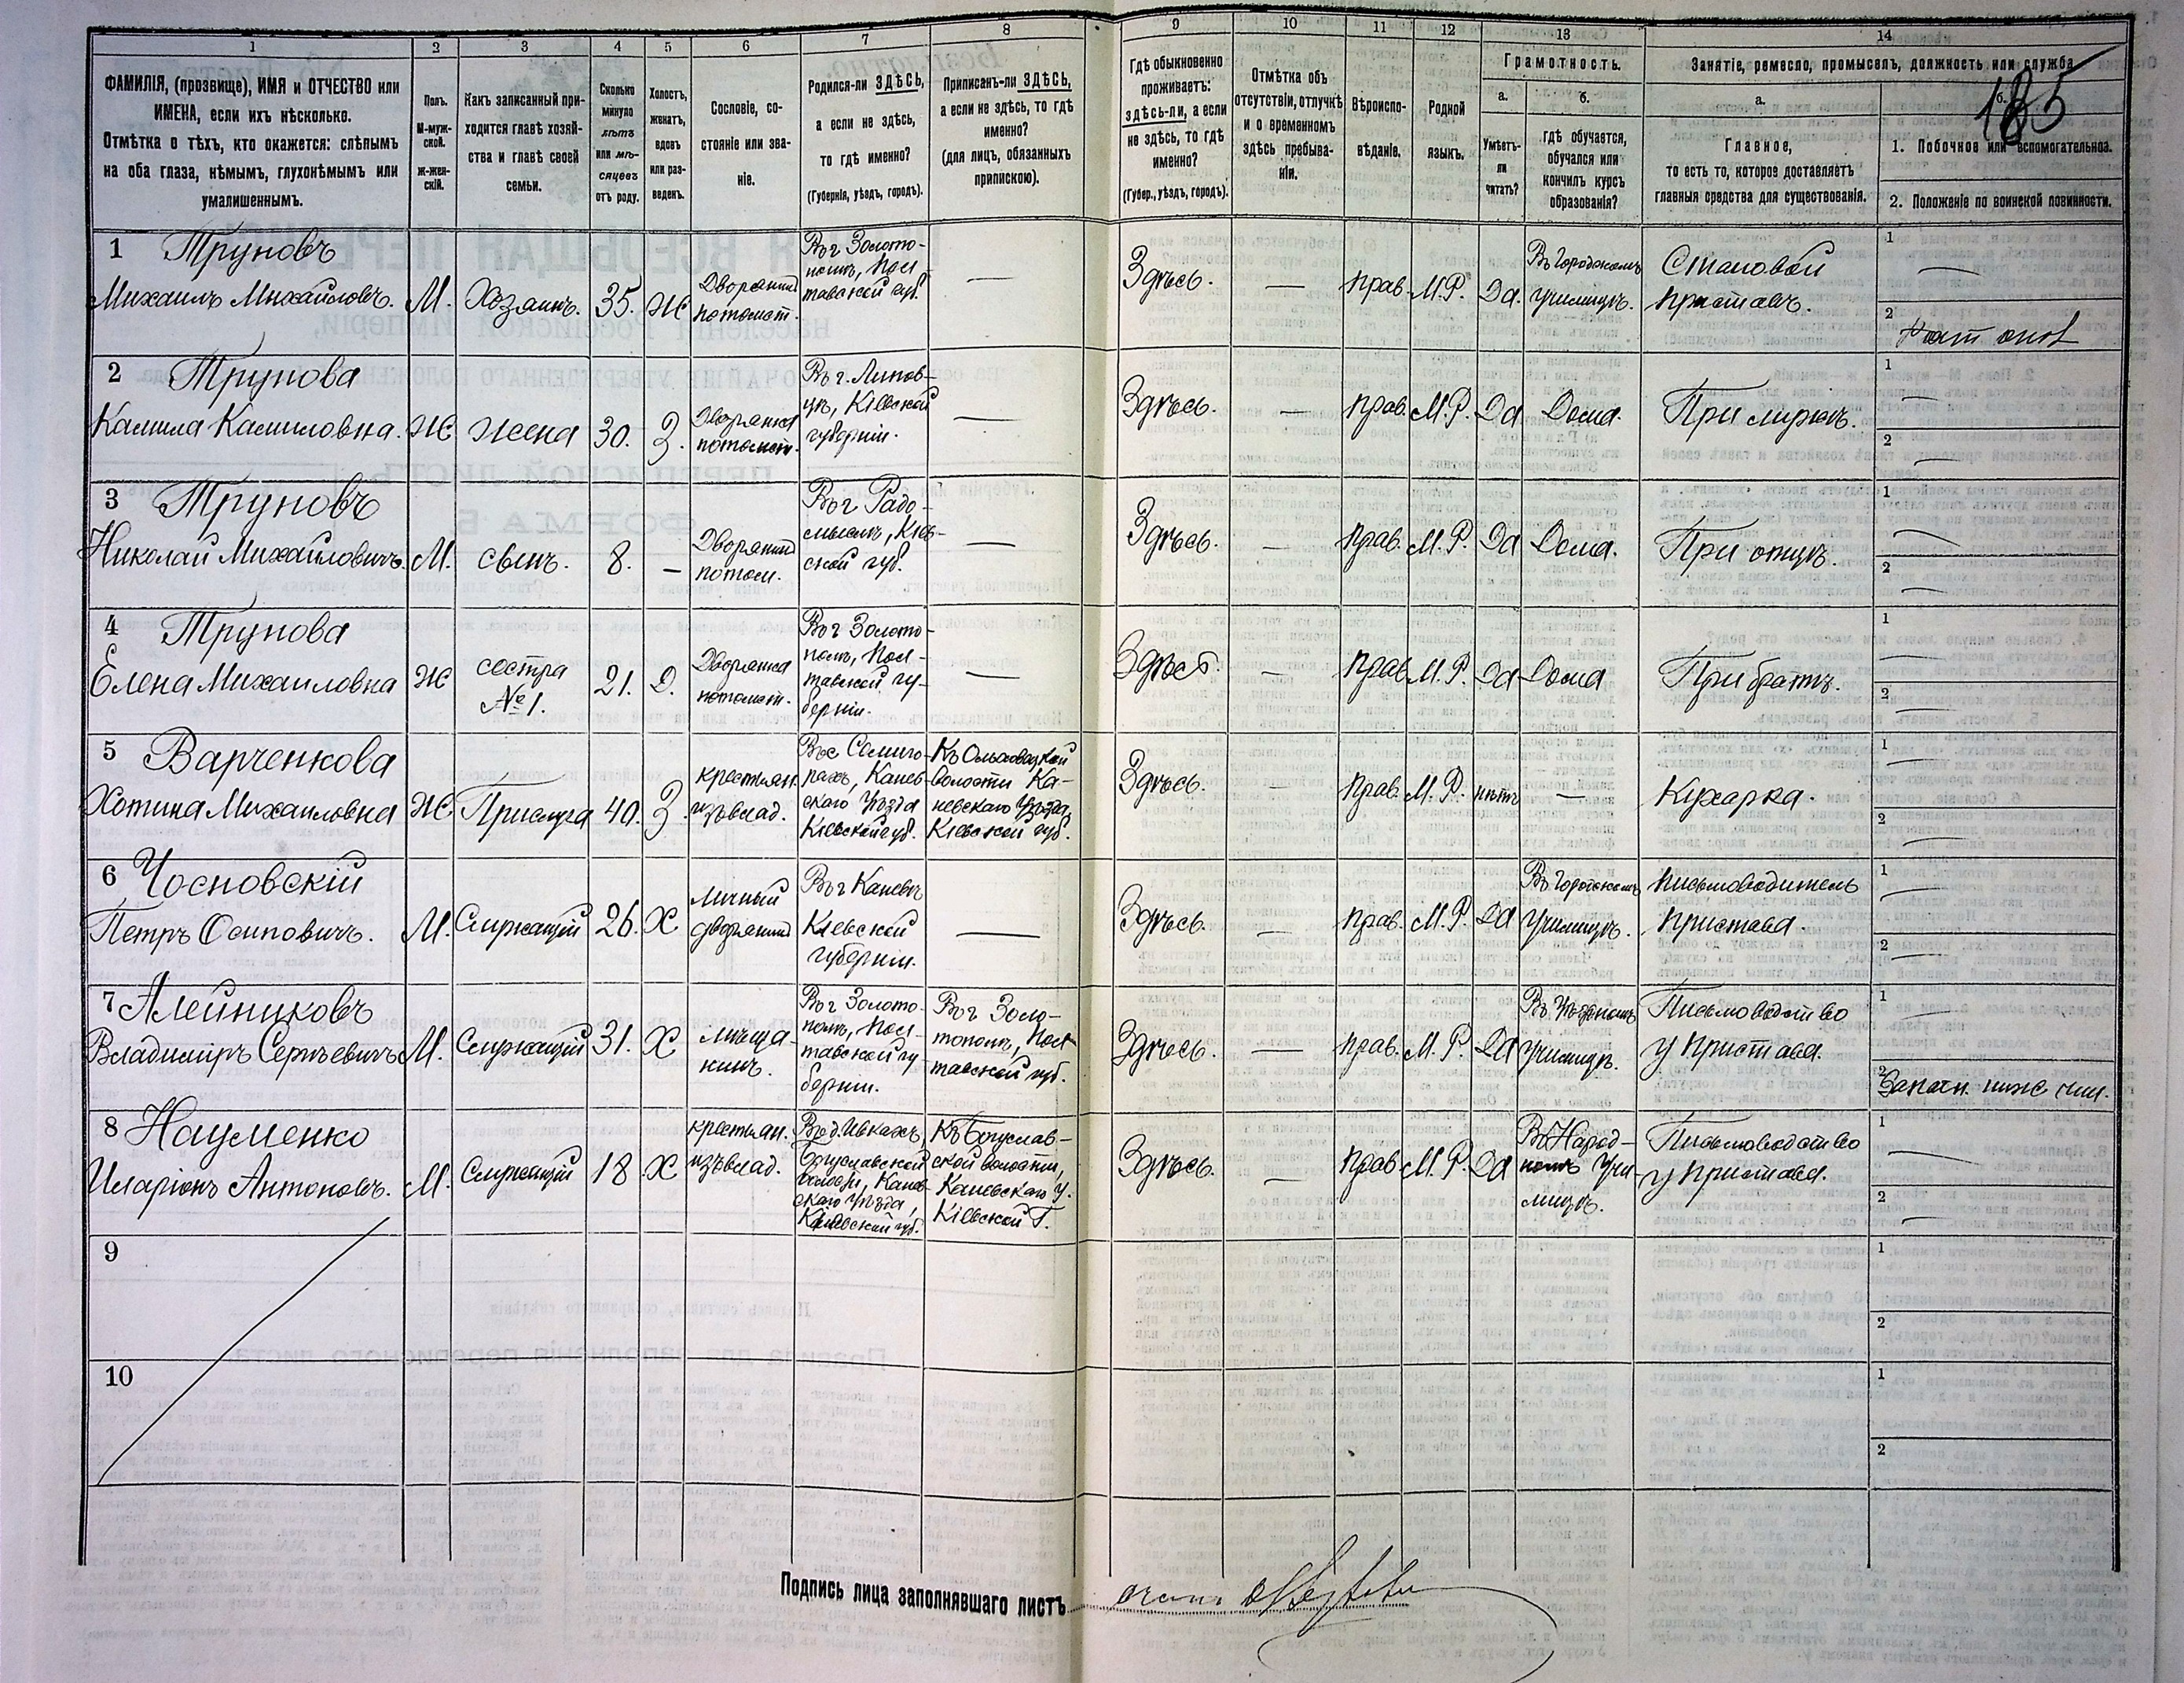 1 2 3 4 5 6 7 8 9 10 11 12 13 14
185
ФАМИЛІЯ, (прозвище), ИМЯ и ОТЧЕСТВО или
ИМЕНА, если ихъ нѣсколько.
Отмѣтка о тѣхъ, кто окажется: слѣпымъ
на оба глаза, нѣмымъ, глухонѣмымъ или
умалишеннымъ.
Полъ.
М-муж-
ской.
ж-жен-
скій.
Какъ записанный при-
ходится главѣ хозяй-
ства и главѣ своей
семьи.
Сколько
минуло
лѣтъ
или мѣ-
сяцевъ
отъ роду.
Холостъ,
женатъ,
вдовъ
или раз-
веденъ.
Сословіе, со-
стояніе или зва-
ніе.
Родился-ли ЗДѢСЬ,
а если не здѣсь,
то гдѣ именно?
(Губернія, уѣздъ, городъ).
Приписанъ-ли ЗДѢСЬ,
а если не здѣсь, то гдѣ
именно?
(для лицъ, обязанныхъ
припискою).
Гдѣ обыкновенно
проживаетъ:
здѣсь-ли, а если
не здѣсь, то гдѣ
именно?
(Губер., уѣздъ, городъ).
Отмѣтка объ
отсутствіи, отлучкѣ
и о временномъ
здѣсь пребыва-
ніи.
Вѣроиспо-
вѣданіе.
Родной
языкъ.
Грамотность.
а.
Умѣетъ-
ли
читать?
б.
гдѣ обучается,
обучался или
кончилъ курсъ
образованія?
Занятіе, ремесло, промыселъ, должность или служба
а.
Главное,
то есть то, которое доставляетъ
главныя средства для существованія.
б.
1. Побочное или вспомогательное.
2. Положеніе по воинской повинности.
1 Труновъ
Михаилъ Михайловъ.
М.
Хозяинъ.
35.
Ж
Дворянинъ
потомст.
Въ г Золото-
ношѣ, Пол-
тавской губ.
—
Здѣсь.
—
прав.
М.Р.
Да.
Въ Городскомъ
училищѣ.
Становой
приставъ.
1 —
2
2 Трунова
Камила Камиловна.
Ж
жена
30.
З.
Дворянка
потомст.
Въ г. Липов-
цѣ, Кіевской
губерніи.
—
Здѣсь.
—
прав.
М.Р.
Да
Дома.
При мужѣ.
1 —
2 —
3 Труновъ
Николай Михайловичъ.
М.
сынъ.
8.
—
Дворянинъ
потом.
Въ г Радо-
мыслѣ, Кіев-
ской губ.
—
Здѣсь.
—
прав.
М.Р.
Да
Дома.
При отцѣ.
1 —
2 —
4 Трунова
Елена Михаиловна
Ж
сестра
№ 1.
21.
Д.
Дворянка
потомст.
Въ г Золото-
ношѣ, Пол-
тавской гу-
берніи.
—
Здѣсь.
—
прав.
М.Р.
Да
Дома
При братѣ.
1 —
2 —
5 Варченкова
Хотина Михаиловна
Ж
Прислуга
40.
З.
крестьян.
изъ влад.
Въ с Семиго-
рахъ, Канев-
скаго Уѣзда
Кіевской губ.
Къ Ольховецкой
волости Ка-
невскаго Уѣзда,
Кіевской губ.
Здѣсь.
—
прав.
М.Р.
нѣтъ
—
Кухарка.
1 —
2 —
6 Чосновскій
Петръ Осиповичъ.
М.
Служащій
26.
Х
личный
дворянинъ
Въ г Каневѣ
Кіевской
губерніи.
—
Здѣсь.
—
прав.
М.Р.
Да
Въ Городскомъ
училищѣ.
Письмоводитель
пристава.
1 —
2 —
7 Алейниковъ
Владиміръ Сергѣевичъ
М.
Служащій
31.
Х
мѣща-
нинъ.
Въ г Золото-
ношѣ, Пол-
тавской гу-
берніи.
Въ г. Золо-
тоношѣ, Пол-
тавской губ.
Здѣсь.
—
прав.
М.Р.
Да
Въ Уѣздномъ
училищѣ.
Письмоводство
у пристава.
1 —
2 Запасн. ниж. чин.
8 Науменко
Иларіонъ Антоновъ.
М.
Служащій
18
Х
крестьян.
изъ влад.
Въ д. Ивкахъ,
Богуславской
волости, Канев-
скаго уѣзда,
Кіевской губ.
Къ Богуслав-
ской волости,
Каневскаго У.
Кіевской Г.
Здѣсь.
—
прав.
М.Р.
Да
Въ Народ-
номъ Учи-
лищѣ.
Письмоводство
у пристава.
1 —
2 —
9
1
2
10
1
2
Подпись лица заполнявшаго листъ